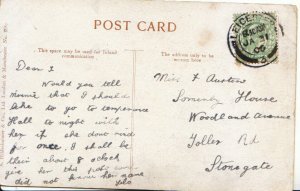 POST CARD
This space may be used for Inland communication
The address only to be written here
LEICESTER
JA 31
Dear F
Would you tell
minnie that I should
like to go to temperance
Hall to night with
her if she dont mind
for once. I shall be
their about 8 o'clock
give her this
did not leave her game
Miss F Austin
Somerby House
Woodland Avenue
Toller Rd
Stonygate